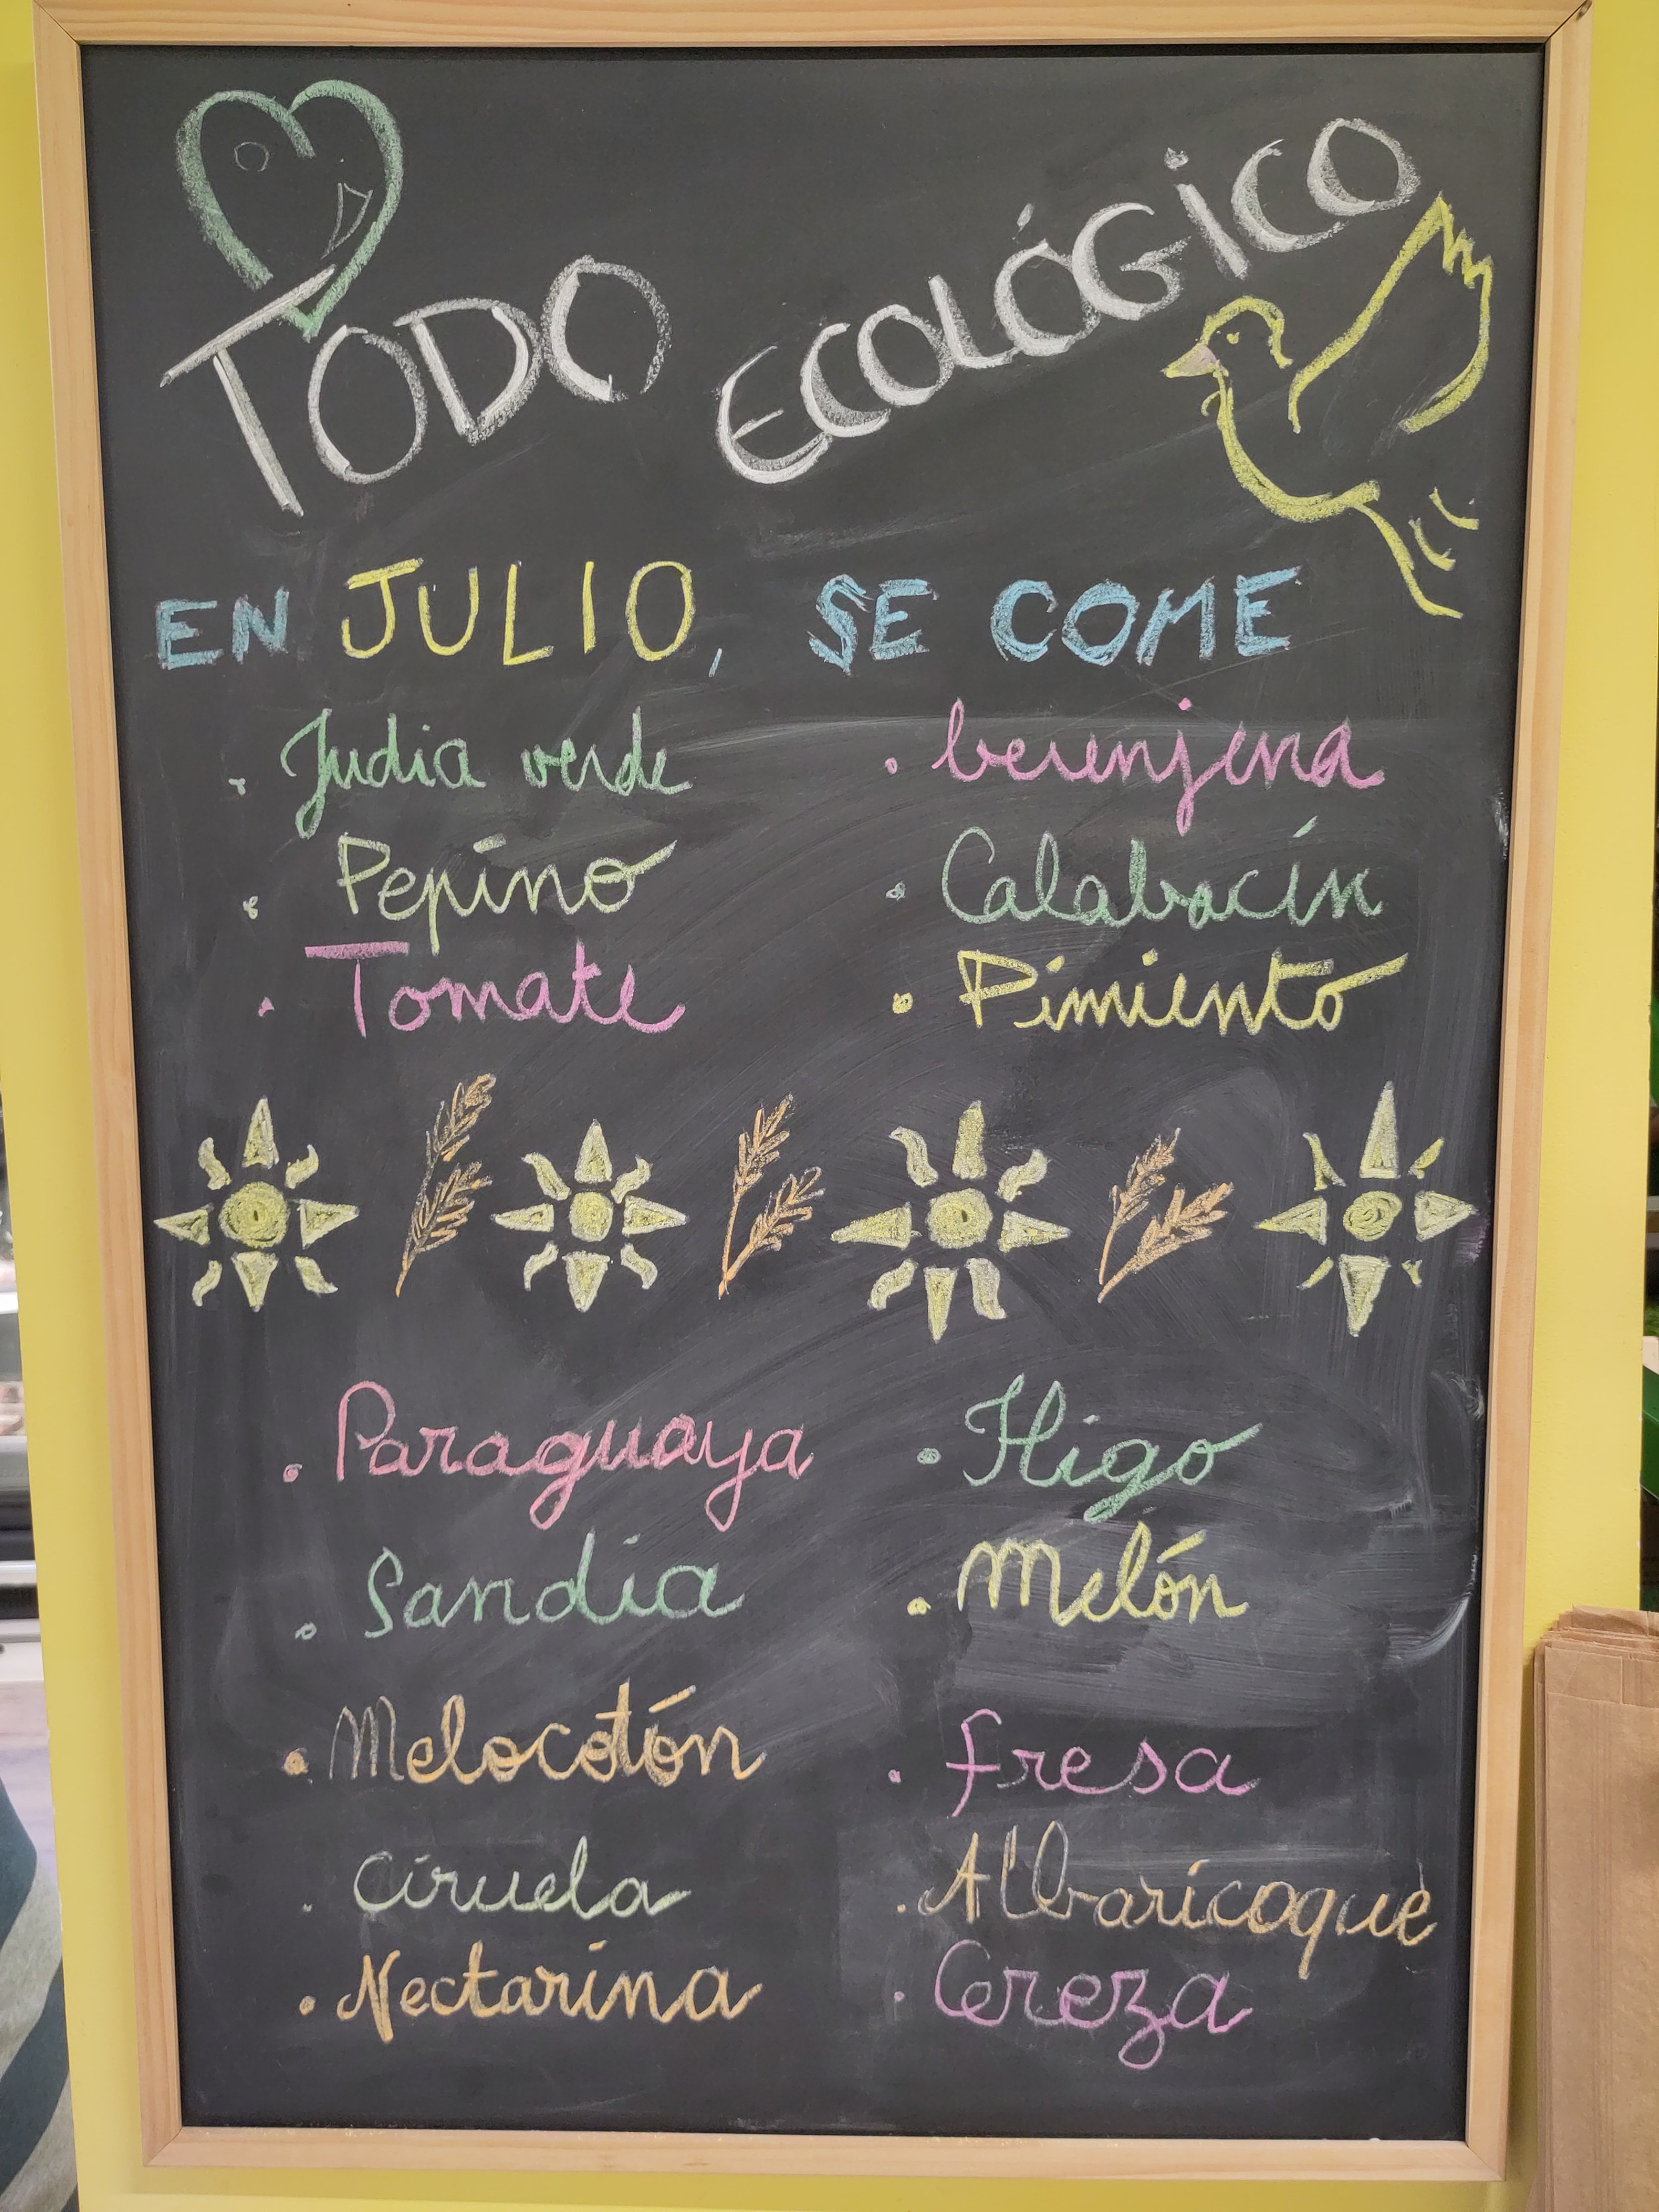 TODO ECOLÓGICO
EN JULIO, SE COME
. Judia verde
. Pepino
. Tomate
. berenjena
. Calabacín
. Pimiento
. Paraguaya
. Sandía
. Melocotón
. Ciruela
. Nectarina
. Higo
. Melón
. fresa
. Albaricoque
. Cereza